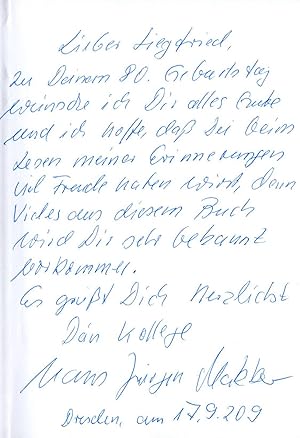 Lieber Siegfried,
zu Deinem 80. Geburtstag
wünsche ich Dir alles Gute
und ich hoffe, daß Du beim
Lesen meiner Erinnerungen
viel Freude haben wirst, denn
Vieles aus diesem Buch
wird Dir sehr bekannt
vorkommen.
Es grüßt Dich herzlichst
Dein Kollege
Hans Jürgen
Dresden, am 17.9.209